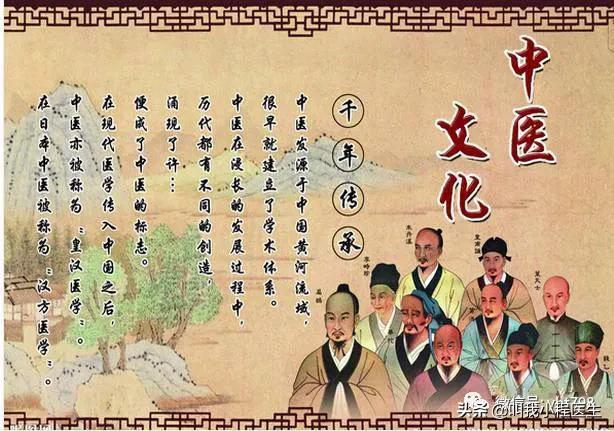 中医
文化
千年传承
中医发源于中国黄河流域，
很早就建立了学术体系。
中医在漫长的发展过程中，
历代都有不同的创造，
涌现了许…
便成了中医的标志。
在现代医学传入中国之后，
中医亦被称为“皇汉医学”。
在日本中医被称为“汉方医学”。
朱丹溪
皇甫谧
李时珍
葉天士
扁鹊
钱乙
微信号: yht798
头条 @叫我小程医生